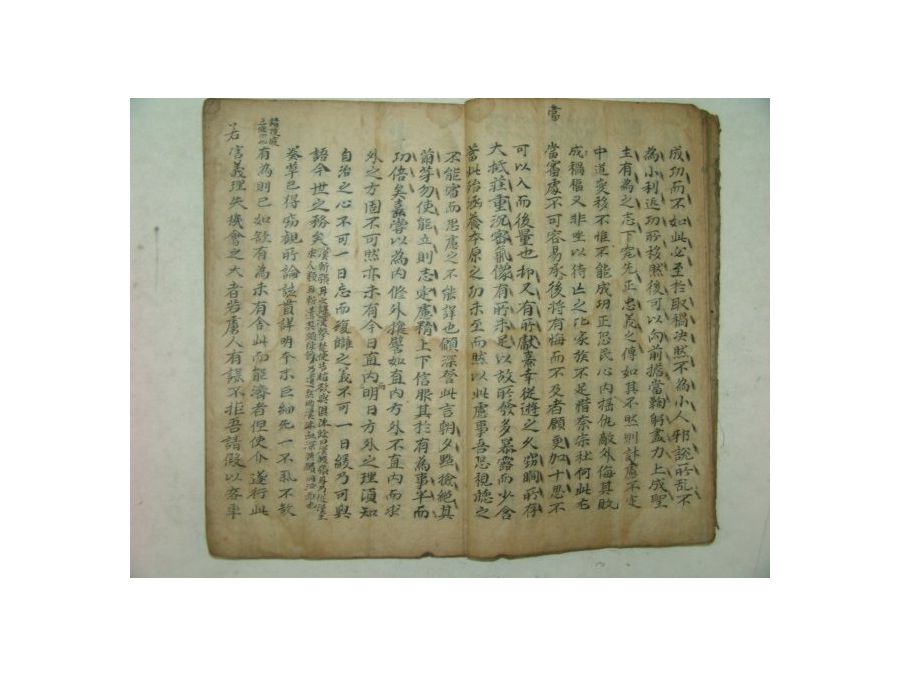 成功而不如此必至於取禍决然不為小人邪說所乱不
為小利近功所移然後可以向前擔當鞠躬盡力上成聖
主有為之志下究先正忠義之傳如其不然則計慮不定
中道変移不惟不能成功正恐民心内揺仇敵外侮其敗
成禍福又非坐以待亡之比家族不足惜奈宗社何此尤
當審處不可容易承後將有悔而不及者願更加十思不
當
可以入而後量也抑又有所献熹幸従遊之久竊覸所存
大抵荘重沉密氣像有所未足以故所發多暴露而少含
蓄此殆涵養本原之功未至而然以此慮事吾恐視聴之
不能審而思慮之不能詳也願深察此言朝夕點撿絶其
萠芽勿使能立則志定慮精上下信服其於有為事半而
功倍矣嘉嘗以為内修外攘譬如直内方外不直内而求
外之方固不可然亦未有今日直内明日方外之理須知
自治之心不可一日忘而復讎之義不可一日緩乃可與
語今世之務矣
葵草已得竊観所論該貫詳明本末巨細先一不乱不敢
有為則已如欲有為未有舎此而能濟者但使介遂行此
若害義理失機會之大者若虜人有謀不拒吾請假以容車